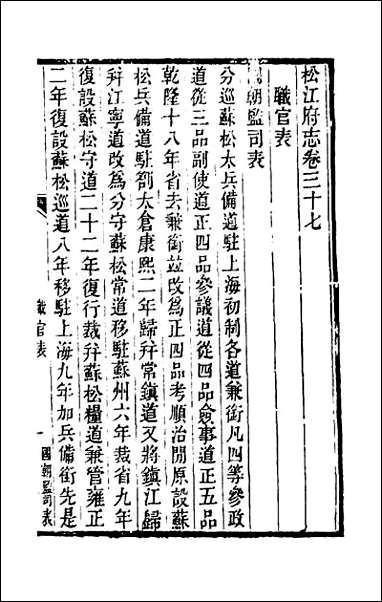 松江府志卷三十七
職官表
國朝監司表
分巡蘇松太兵備道駐上海初制各道兼銜凡四等參政
道從三品副使道正四品參議道從四品僉事道正五品
乾隆十八年省去兼銜竝改爲正四品考順治間原設蘇
松兵備道駐劄太倉康熙二年歸幷常鎮道又將鎮江歸
幷江寧道改爲分守蘇松常道移駐蘇州六年裁省九年
復設蘇松守道二十二年復行裁幷蘇松糧道兼管雍正
二年復設蘇松巡道八年移駐上海九年加兵備銜先是
職官表
一
國朝監司表